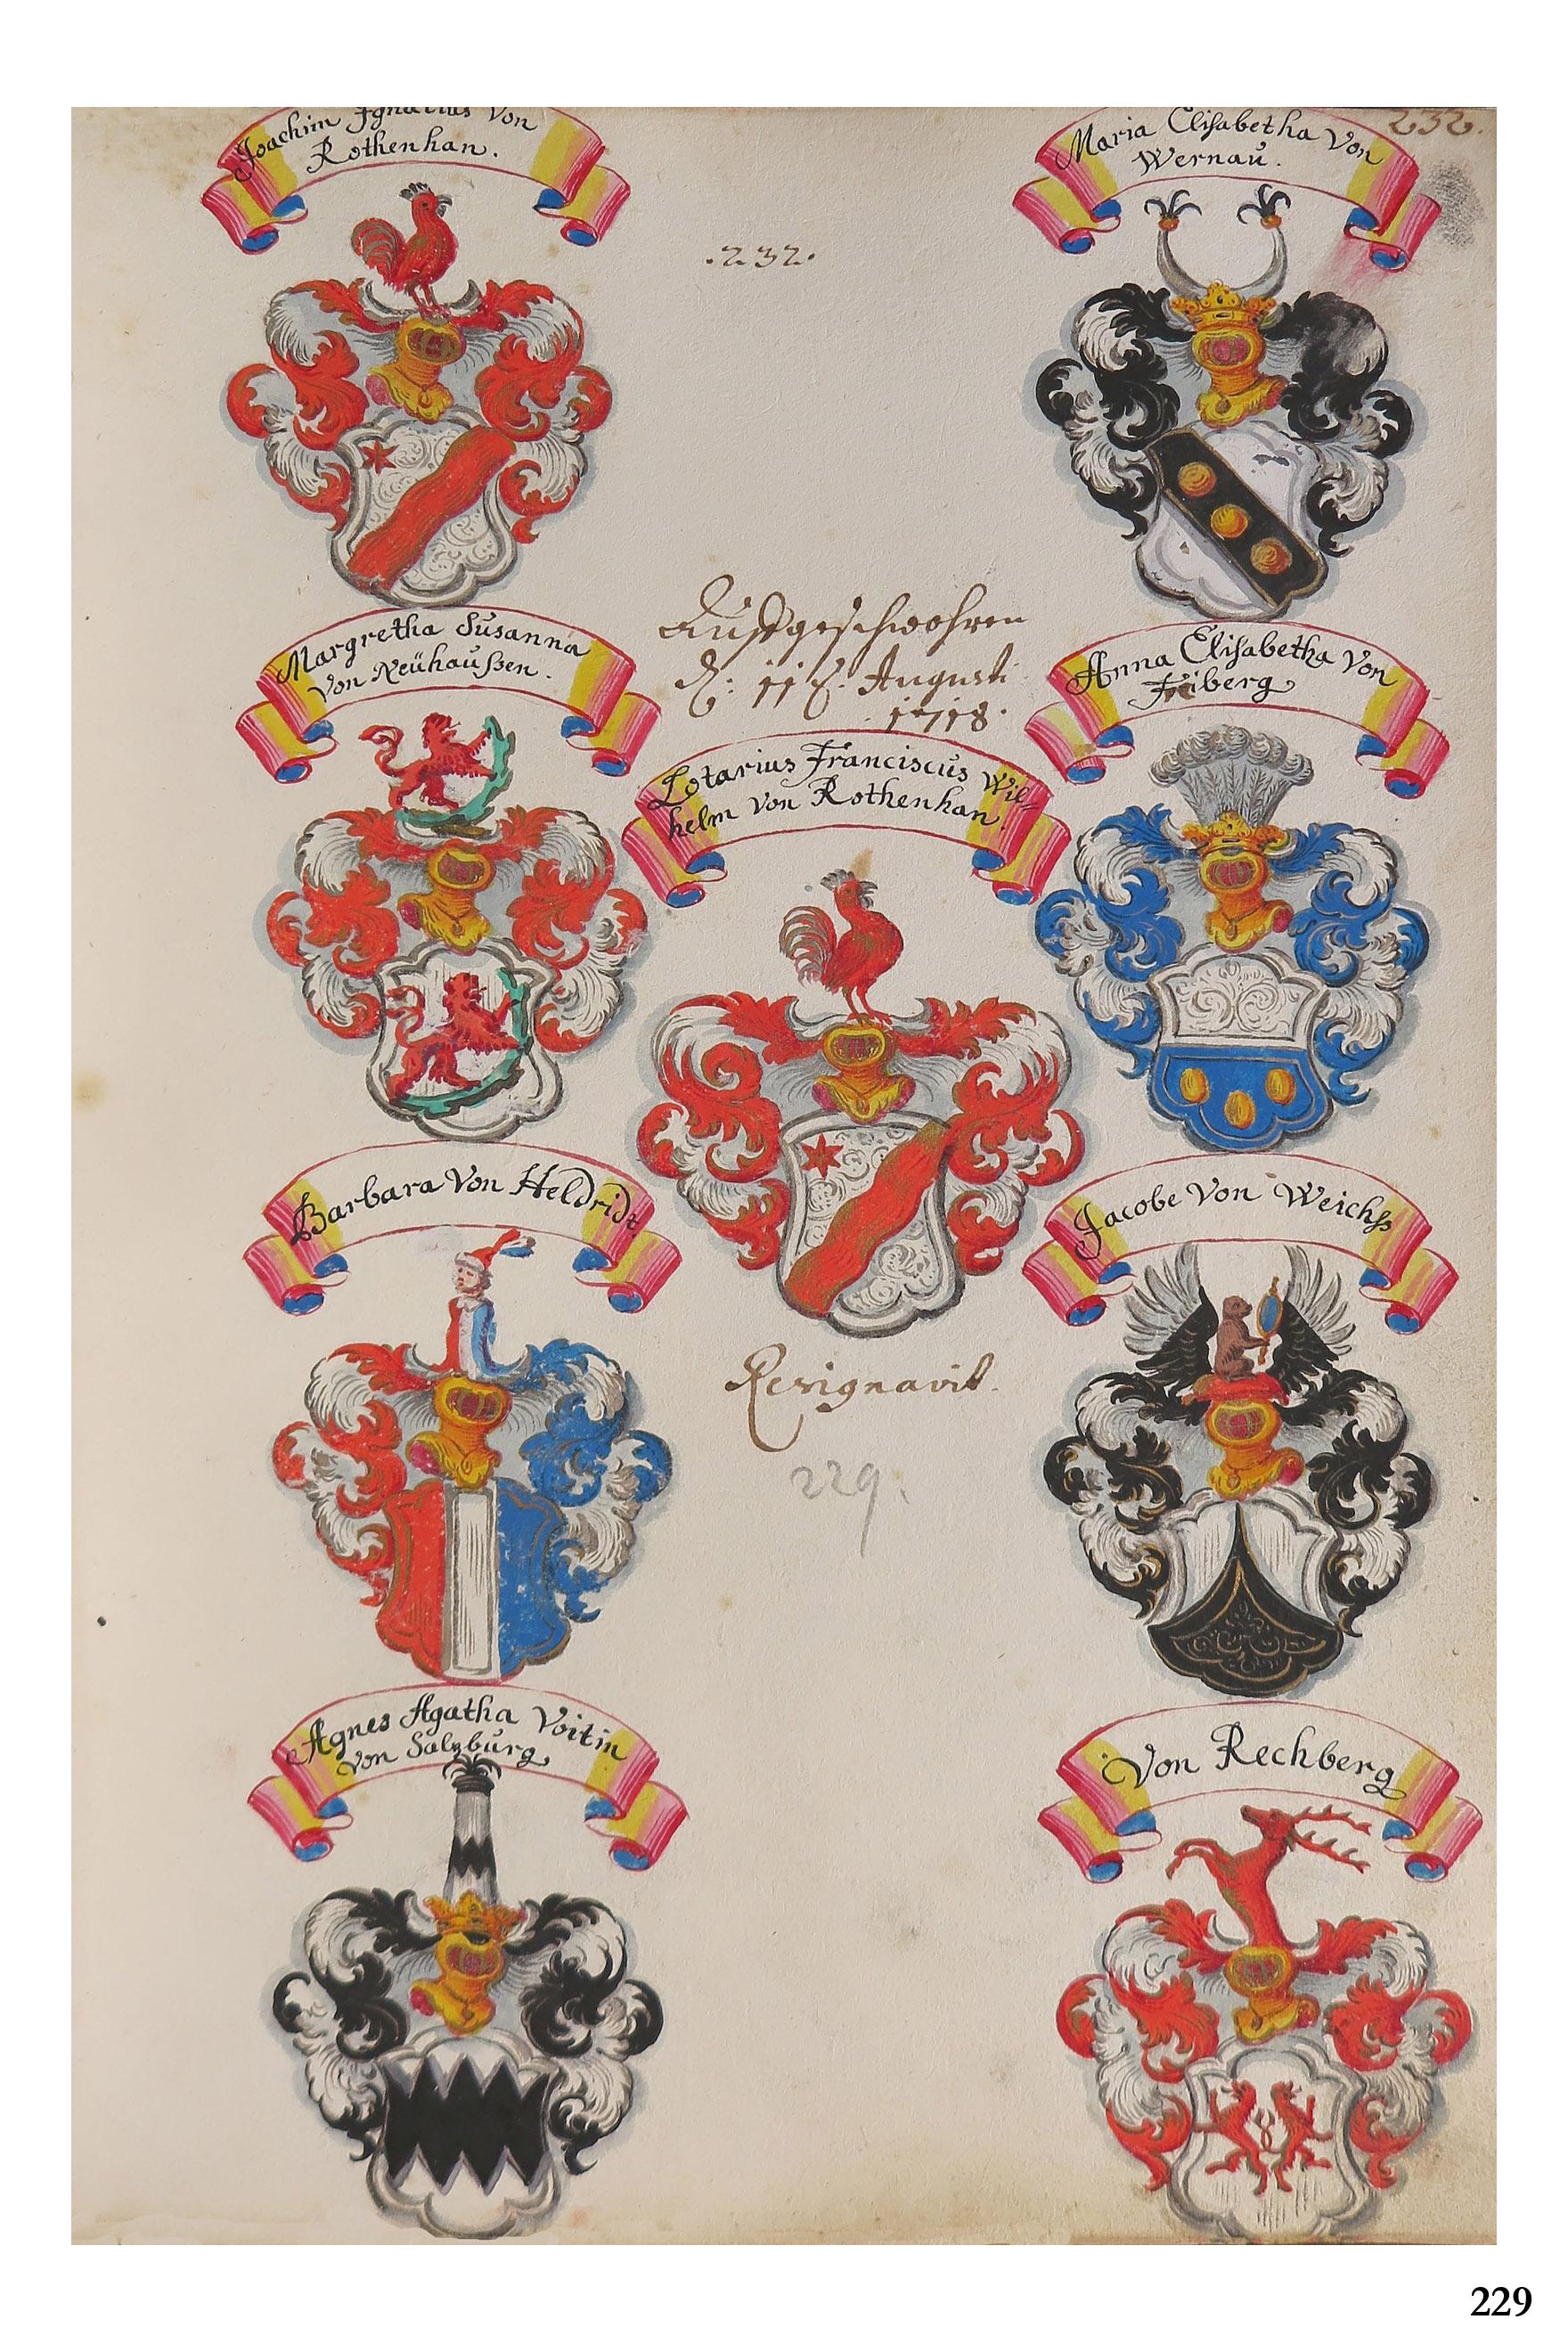 Joachim Ignatius Von
Rothenhan.
Maria Elisabetha Von
Wernaŭ.
232.
.232.
Margretha Sŭsanna
Von Neŭhaŭßen.
Auffgeschwohren
d: 11t. Augusti
1718.
Anna Elisabetha Von
Freiberg
Lotarius Franciscŭs Wil-
helm Von Rothenhan.
Barbara Von Heldridt
Jacobe Von Weichß
Resignavit.
229.
Agnes Agatha Voitin
Von Salzbŭrg
Von Rechberg
229